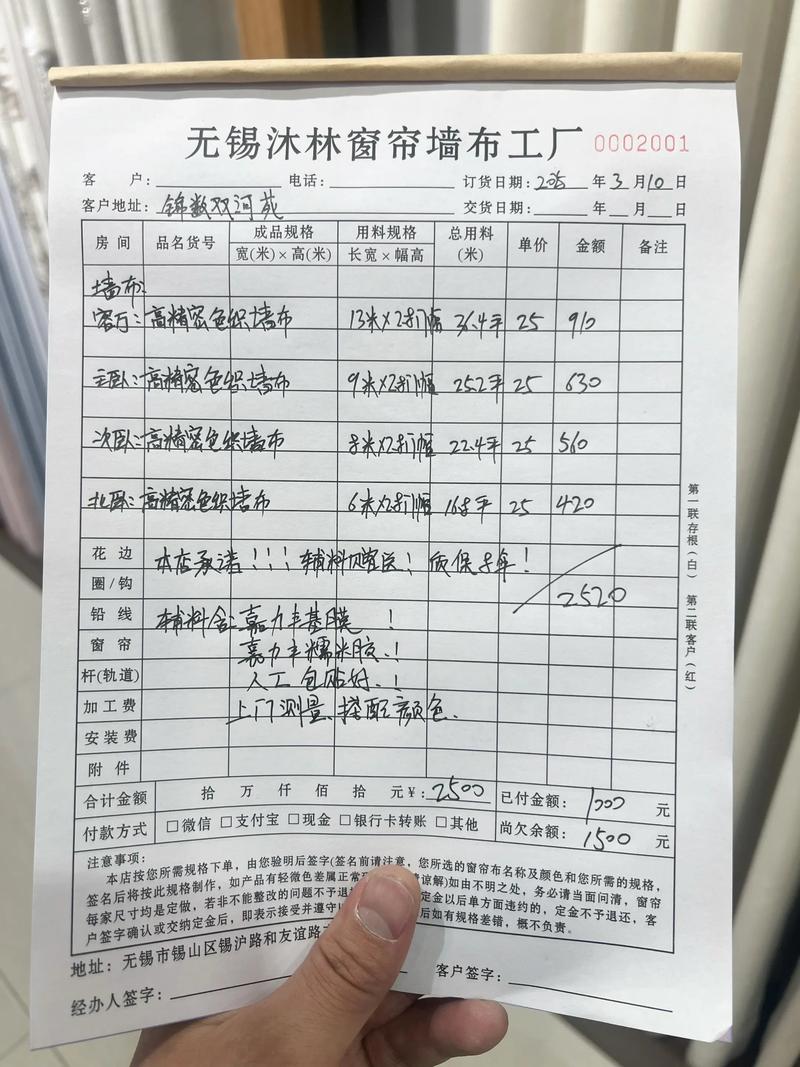 无锡沐林窗帘墙布工厂 0002001
客 户： 电话： 订货日期：2025 年 3 月 10 日
客户地址：锦数双河苑 交货日期： 年 月 日
房间 品名货号 成品规格 宽(米)×高(米) 用料规格 长宽×幅高 总用料(米) 单价 金额 备注
墙布:
客厅：高精密色织墙布 13米×2.8门幅 36.4平 25 910
主卧：高精密色织墙布 9米×2.8门幅 25.2平 25 630
次卧：高精密色织墙布 8米×2.8门幅 22.4平 25 560
北卧：高精密色织墙布 6米×2.8门幅 16.8平 25 420
花边 本店承诺！！！辅料赠送！质保8年！
圈/钩 2520
铅线 辅料含：嘉力丰基膜！
窗帘 嘉力丰糯米胶.！
杆(轨道) 人工包贴好.！
加工费 上门测量、搭配颜色.
安装费
附件
合计金额 拾 万 仟 佰 拾 元¥：2500 已付金额：1000 元
付款方式 □微信 □支付宝 □现金 □银行卡转账 □其他 尚欠余额：1500 元
注意事项：
本店按您所需规格下单，由您验明后签字(签名前请注意，您所选的窗帘布名称及颜色和您所需的规格，
签名后将按此规格制作，如产品有轻微色差属正常 谅解)如由不明之处，务必请当面问清，窗帘
每家尺寸均是定做，若非不能整改的问题不予退 定金以后单方面违约的，定金不予退还，客
户签字确认或交纳定金后，即表示接受并遵守 后如有规格差错，概不负责。
地址：无锡市锡山区锡沪路和友谊路
经办人签字： 客户签字：
第一联存根(白) 第二联客户(红)